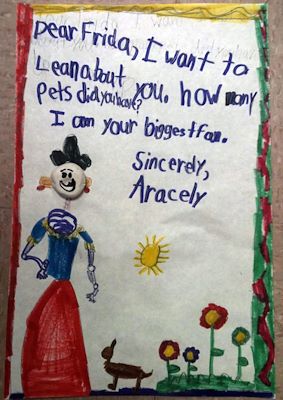 Dear Frida, I want to
Lean about you. how many
Pets did you have?
I am your biggest fan.
Sincerely,
Aracely